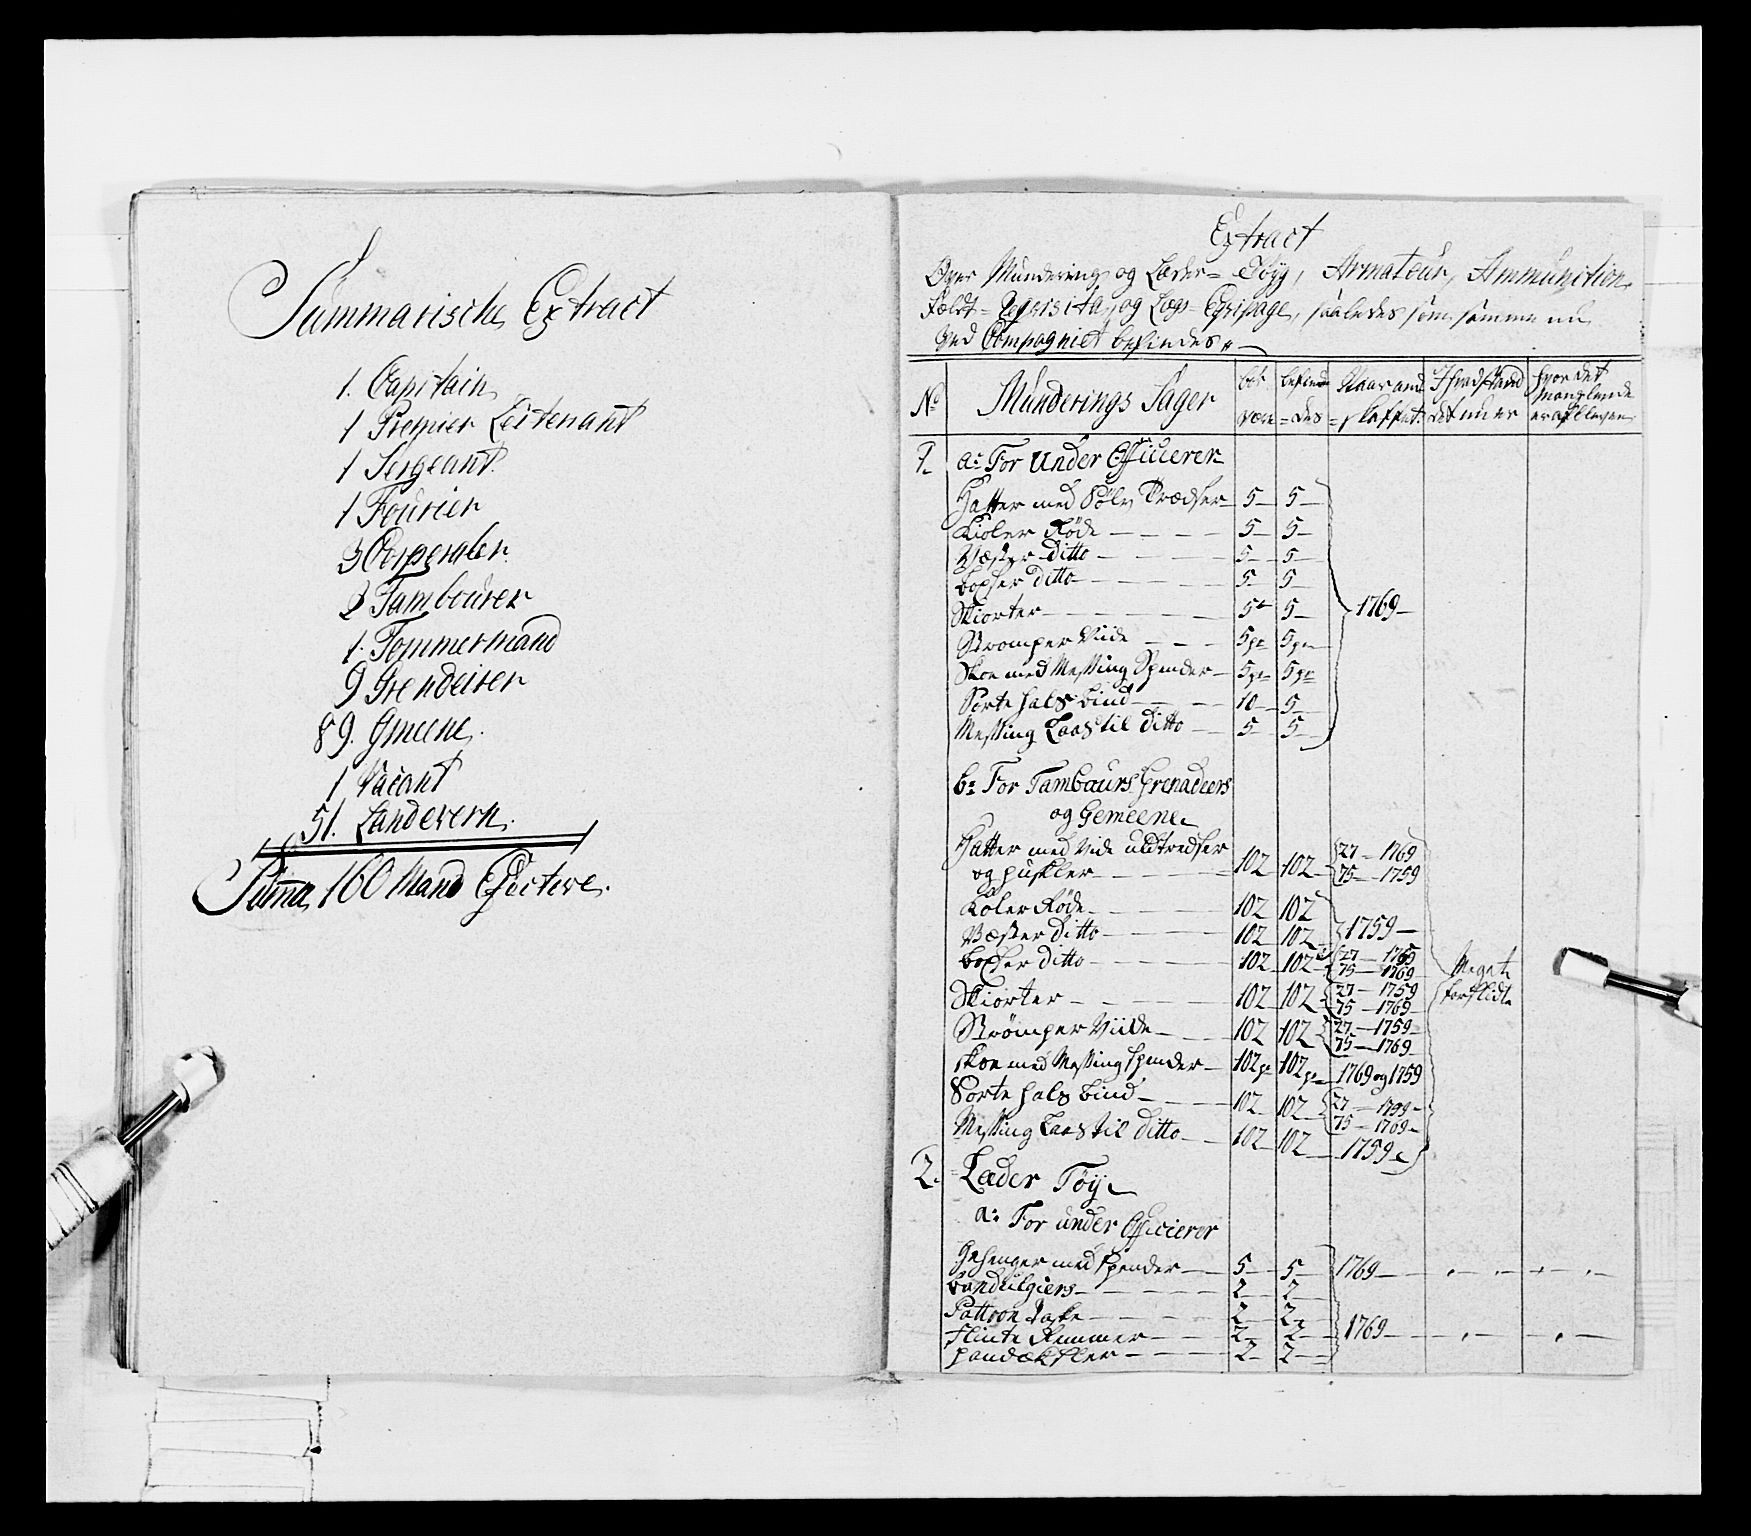 Summarische Extract
1. Capitain
1 Premier Leitenant
1 Sergeant
1 Fourier
3 Corperaler
2 Tambourer
1. Tommermand
9 Grendeirer
89. Gmeene
1 Vacant
51. Landevern
Suma 160 Mand Efective.
Extract
Over Mundering og Læder-Tøyg, Armatour, Ammunition
Feldt-Reqvisita, og Regs-Eqvipage, saaledes som samme nu
ved Compagniet befindes
No Munderings Sager bør være befindes Naar anskaffet I hvad stand det nu er hvor det manglende er afbleven
1. a: For Under Officierer
Hatter med Sølv Trædser 5 5
Kioler Røde 5 5
Væster ditto 5 5
boxser ditto 5 5
Skiorter 5 5 1769
Strømper Viide 5 pr 5 pr
Skoe med Messing Spender 5 pr 5 pr
Sorte hals bind 10 5
Messing Laas til ditto 5 5
b: For Tambours Grenadeers
og Gemeene
Hatter med Vide uldtredser 27 1769
og puskler 102 102 75 1759
Kioler Røde 102 102
Væster ditto 102 102 1759
boxser ditto 102 102 27 1769 75 1769 Meget
Skiorter 102 102 27 1759 75 1769 forslidte
Strømper Viide 102 102 27 1759 75 1769
Skoe med Messing Spender 102 pr 102 pr 1769 og 1759
Sorte hals bind 102 102 27 1759 75 1769
Messing Laas til ditto 102 102 1759
2. Læder Tøy
a: For under Officierer
Gehenger med Spender 5 5 1769
bandulgiers 2 2
Pattron Taske 2 2
Flinte Remmer 2 2 1769
handæksler 2 2